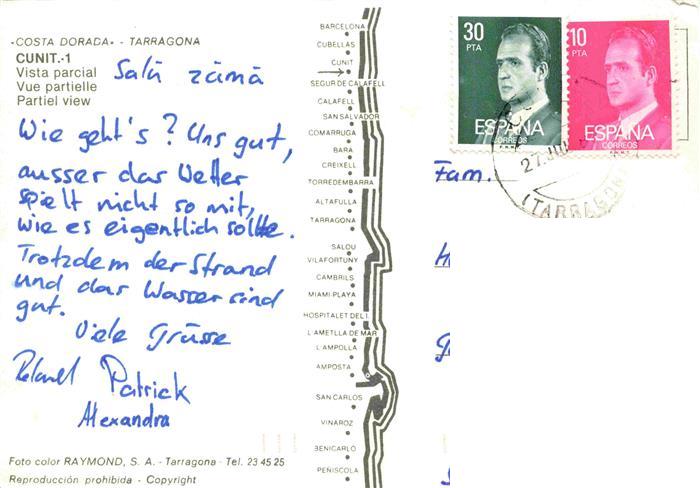 «COSTA DORADA» - TARRAGONA
CUNIT.-1
Vista parcial
Vue partielle
Partiel view
Salü zämä
Wie geht's? Uns gut,
ausser das Wetter
spielt nicht so mit,
wie es eigentlich sollte.
Trotzdem der Strand
und das Wasser sind
gut.
Viele Grüsse
Patrick
Alexandra
Foto color RAYMOND, S. A. - Tarragona - Tel. 23 45 25
Reproducción prohibida - Copyright
BARCELONA
CUBELLAS
CUNIT
SEGUR DE CALAFELL
CALAFELL
SAN SALVADOR
COMARRUGA
BARA
CREIXELL
TORREDEMBARRA
ALTAFULLA
TARRAGONA
SALOU
VILAFORTUNY
CAMBRILS
MIAMI-PLAYA
HOSPITALET DEL I.
L'AMETLLA DE MAR
L'AMPOLLA
AMPOSTA
SAN CARLOS
VINAROZ
BENICARLO
PEÑISCOLA
30 PTA
ESPAÑA
CORREOS
10 PTA
ESPAÑA
CORREOS
27 JUL
(TARRAGONA
Fam.